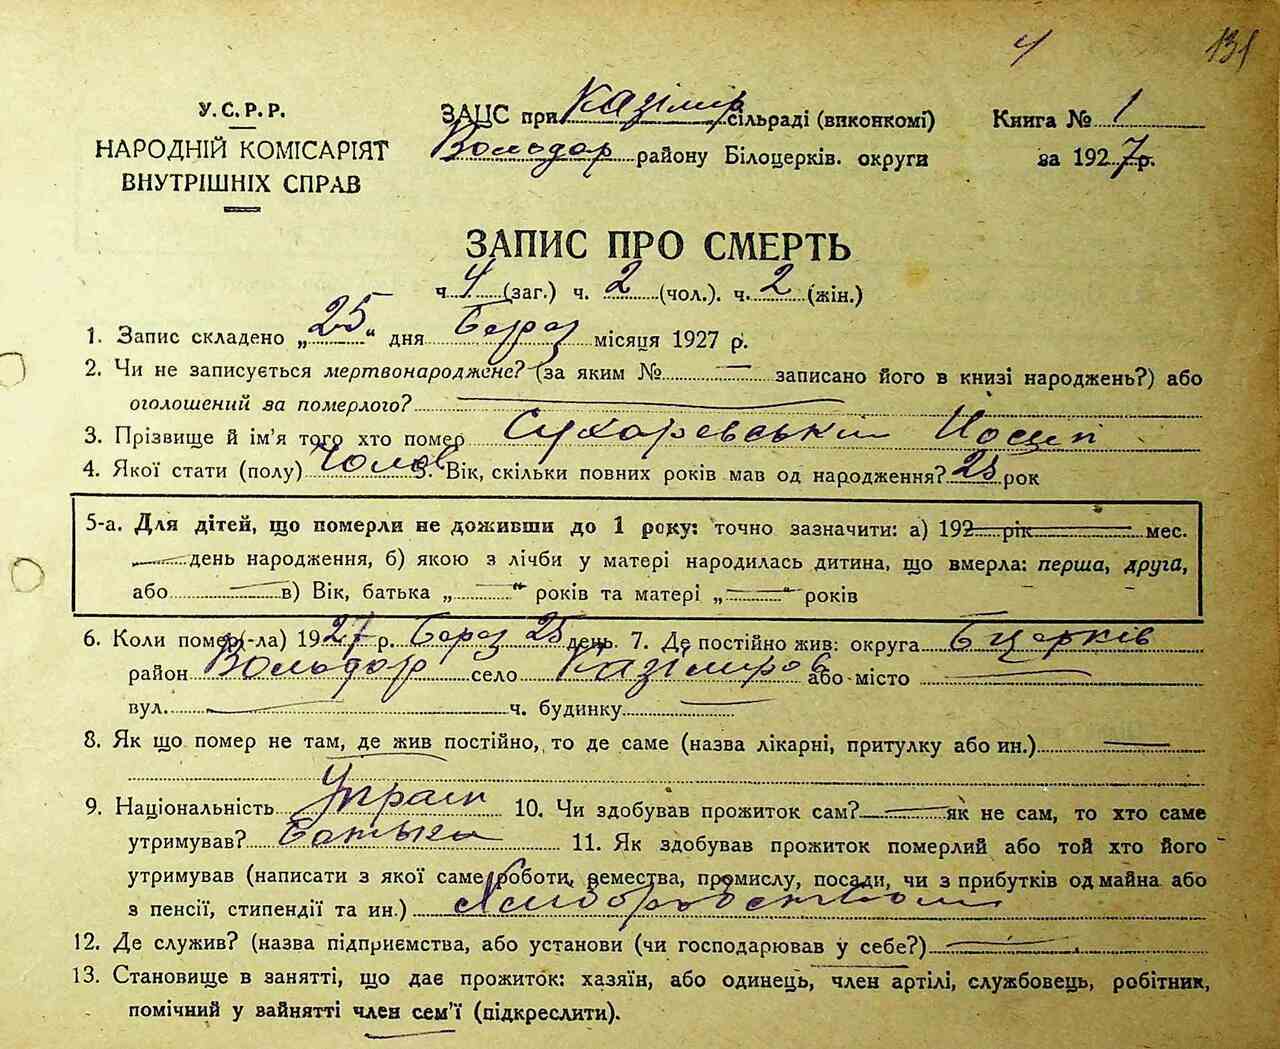 4 131
У.С.Р.Р.
НАРОДНІЙ КОМІСАРІЯТ
ВНУТРІШНІХ СПРАВ
ЗАЦС при Казімір сільраді (виконкомі)
Володар району Білоцерків. округи
Книга № 1
за 1927 р.
ЗАПИС ПРО СМЕРТЬ
ч. 4 (заг.) ч. 2 (чол.). ч. 2 (жін.)
1. Запис складено „25“ дня Берез місяця 1927 р.
2. Чи не записується мертвонароджене? (за яким № — записано його в книзі народжень?) або
оголошений за померлого? —
3. Прізвище й ім'я того хто помер Сухаревський Йосип
4. Якої стати (полу) Чолов 5. Вік, скільки повних років мав од народження? 25 рок
5-а. Для дітей, що померли не доживши до 1 року: точно зазначити: а) 192 — рік — мес.
— день народження, б) якою з лічби у матері народилась дитина, що вмерла: перша, друга,
або — в) Вік, батька „—“ років та матері „—“ років
6. Коли помер(-ла) 1927 р. Берез 25 день. 7. Де постійно жив: округа Бцерків
район Володар село Казіміров або місто —
вул. — ч. будинку —
8. Як що помер не там, де жив постійно, то де саме (назва лікарні, притулку або ин.) —
9. Національність Україн 10. Чи здобував прожиток сам? — як не сам, то хто саме
утримував? Батьки 11. Як здобував прожиток померлий або той хто його
утримував (написати з якої саме роботи, ремества, промислу, посади, чи з прибутків од майна або
з пенсії, стипендії та ин.) Хліборобством
12. Де служив? (назва підприємства, або установи (чи господарював у себе?) —
13. Становище в занятті, що дає прожиток: хазяїн, або одинець, член артілі, службовець, робітник,
помічний у вайнятті член сем'ї (підкреслити).